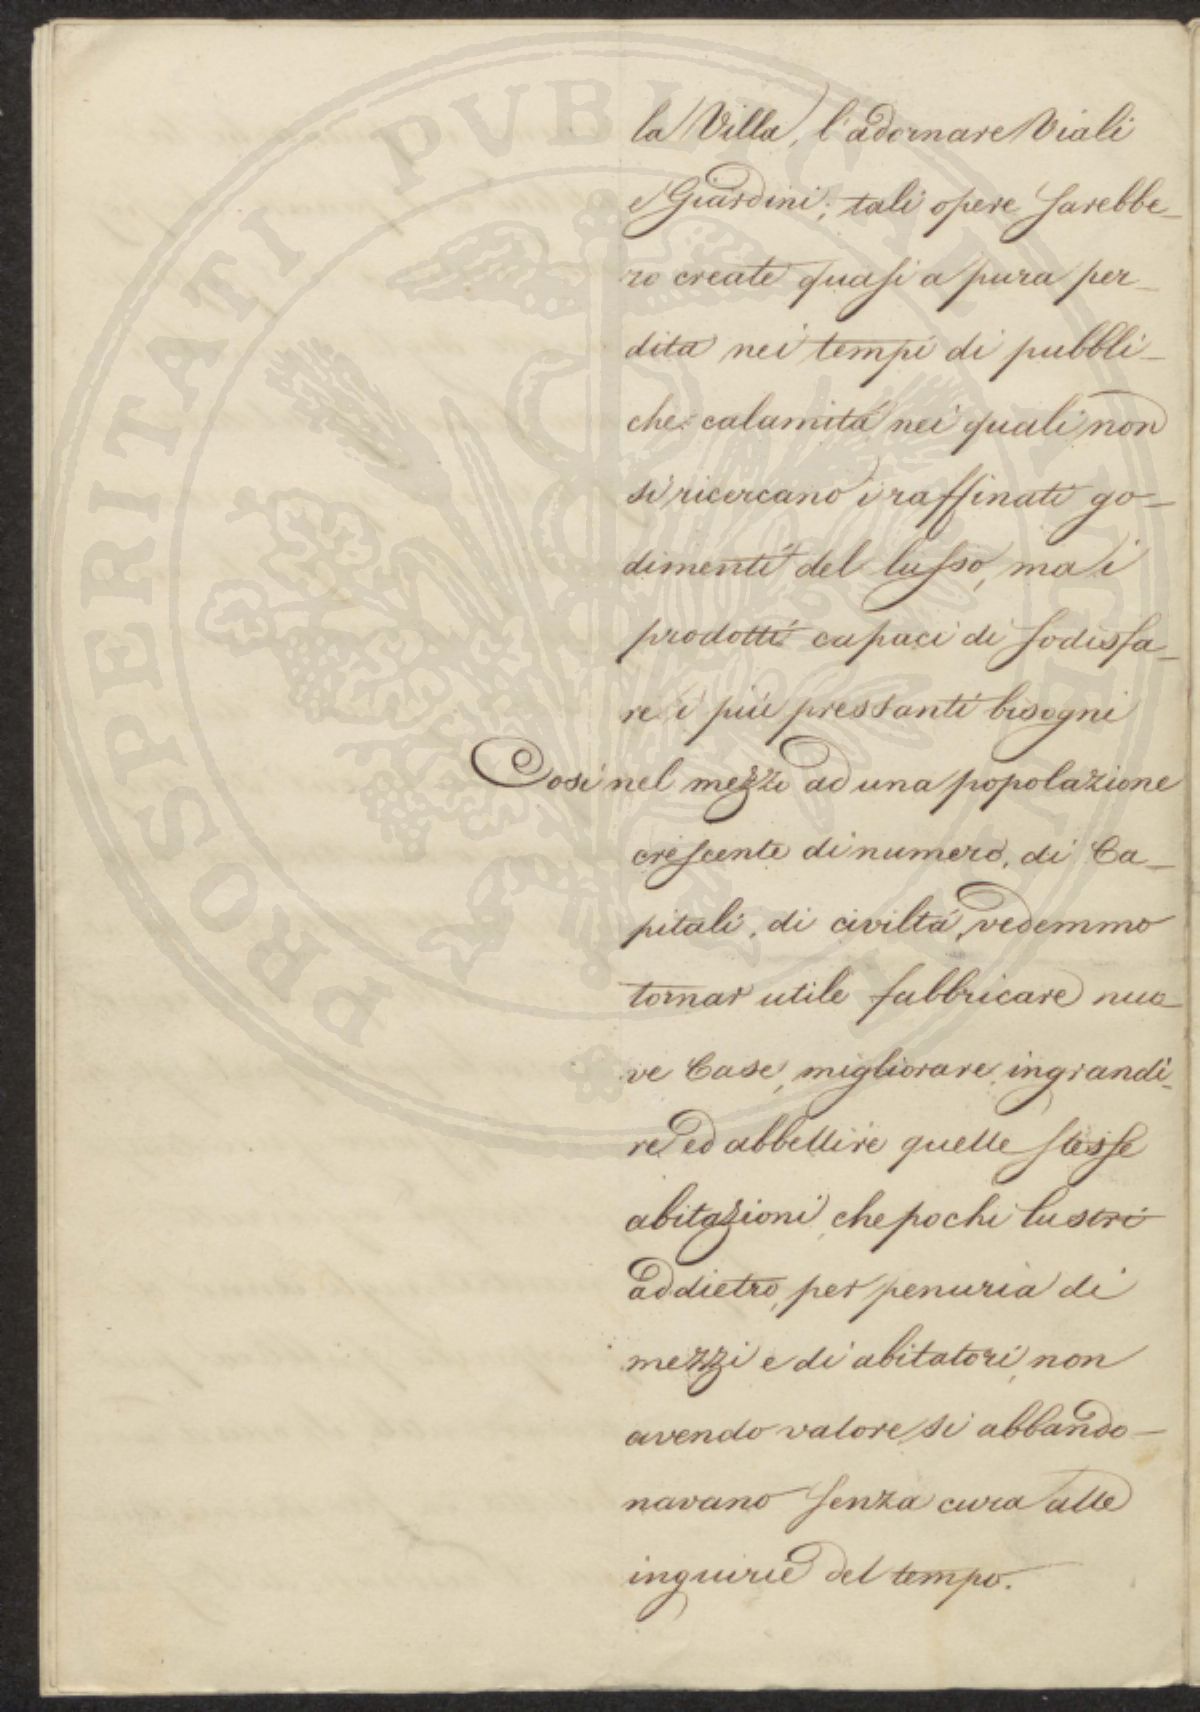 la Villa, l'adornare Viali
e Giardini; tali opere sarebbe_
ro create quasi a pura per_
dita nei tempi di pubbli_
che calamità nei quali non
si ricercano i raffinati go_
dimenti del lusso, ma i
prodotti capaci di sodisfa_
re i più pressanti bisogni
Così nel mezzo ad una popolazione
crescente di numero, di Ca_
pitali, di civiltà, vedemmo
tornar utile fabbricare nuo_
ve Case, migliorare, ingrandi_
re ed abbellire quelle stesse
abitazioni, che pochi lustri
addietro, per penuria di
mezzi e di abitatori, non
avendo valore si abbando_
navano senza cura alle
ingiurie del tempo.
PROSPERITATI PUBLICAE